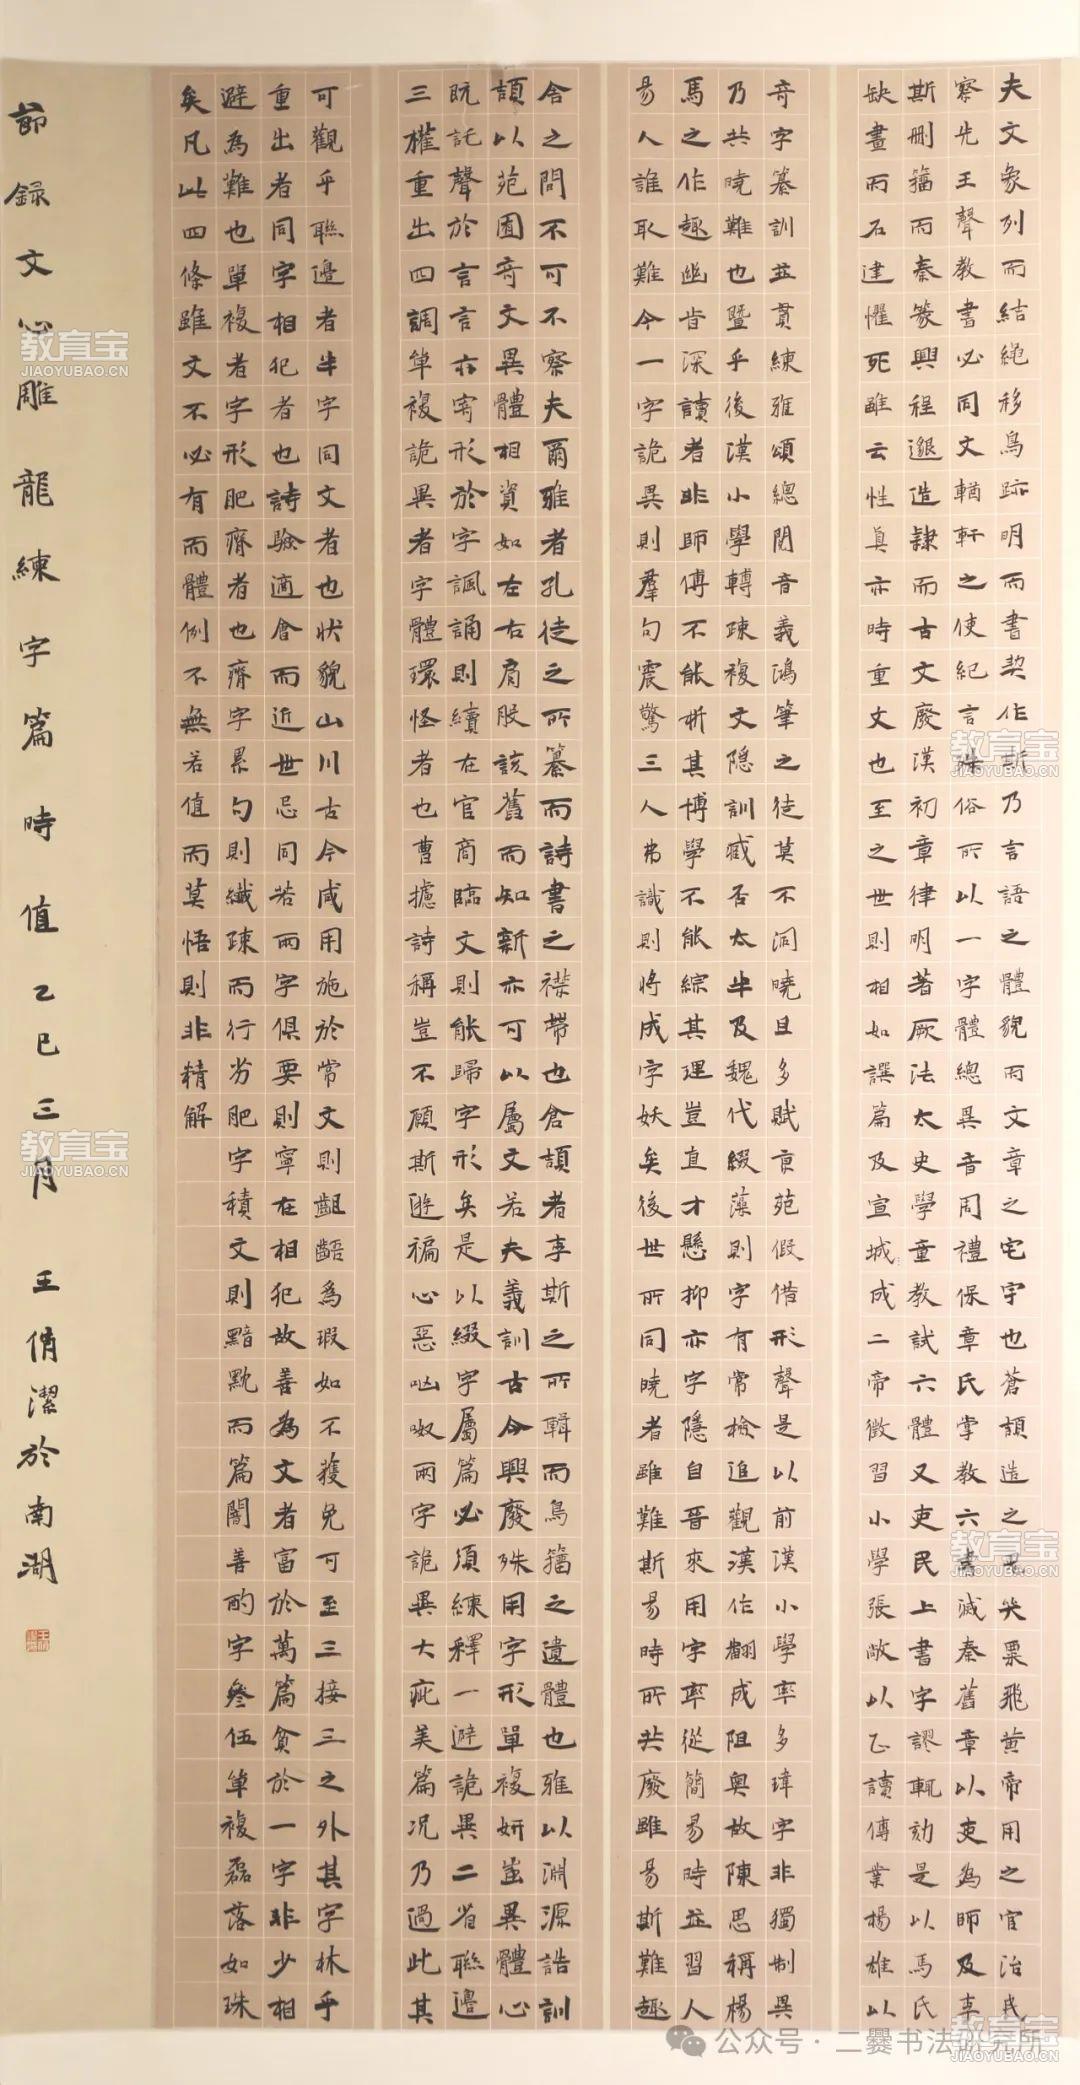 夫文象列而結繩移鳥跡明而書契作斯乃言語之體貌而文章之宅宇也蒼頡造之鬼哭粟飛黃帝用之官治民
察先王聲教書必同文輶軒之使紀言殊俗所以一字體總異音周禮保章氏掌教六書滅秦舊章以吏為師及李
斯刪籀而秦篆興程邈造隸而古文廢漢初章律明著厥法太史學童教試六體又吏民上書字謬輒劾是以馬氏
缺畫而石建懼死雖云性真亦時重文也至之世則相如譔篇及宣城成二帝徵習小學張敞以正讀傳業楊雄以
奇字纂訓並貫練雅頌總閱音義鴻筆之徒莫不洞曉且多賦京苑假借形聲是以前漢小學率多瑋字非獨制異
乃共曉難也暨乎後漢小學轉疎複文隱訓臧否太半及魏代綴藻則字有常檢追觀漢作翻成阻奧故陳思稱楊
馬之作趣幽旨深讀者非師傳不能析其博學不能綜其理豈直才懸抑亦字隱自晉來用字率從簡易時並習人
易人誰取難今一字詭異則羣句震驚三人弗識則將成字妖矣後世所同曉者雖難斯易時所共廢雖易斯難趣
舍之間不可不察夫爾雅者孔徒之所纂而詩書之襟帶也倉頡者李斯之所輯而鳥籀之遺體也雅以淵源詁訓
頡以苑囿奇文異體相資如左右肩股該舊而知新亦可以屬文若夫義訓古今興廢殊用字形單複妍蚩異體心
既託聲於言言亦寄形於字諷誦則績在宮商臨文則能歸字形矣是以綴字屬篇必須練釋一避詭異二省聯邊
三權重出四調單複詭異者字體環怪者也曹攄詩稱豈不願斯遊褊心惡呐呶兩字詭異大疵美篇况乃過此其
可觀乎聯邊者半字同文者也狀貌山川古今咸用施於常文則齟齬為瑕如不獲免可至三接三之外其字林乎
重出者同字相犯者也詩驗適會而近世忌同若兩字俱要則寧在相犯故善為文者富於萬篇貧於一字一字非少相
避為難也單複者字形肥瘠者也瘠字累句則纖疎而行劣肥字積文則黯黕而篇闇善酌字參伍單複磊落如珠
矣凡此四條雖文不必有而體例不無若值而莫悟則非精解
節録文心雕龍練字篇時值乙巳三月 王倩潔於南湖
教育宝
JIAOYUBAO.CN
教育宝
JIAOYUBAO.CN
教育宝
JIAOYUBAO.CN
教育宝
JIAOYUBAO.CN
教育宝
JIAOYUBAO.CN
公众号·二爨书法研究所